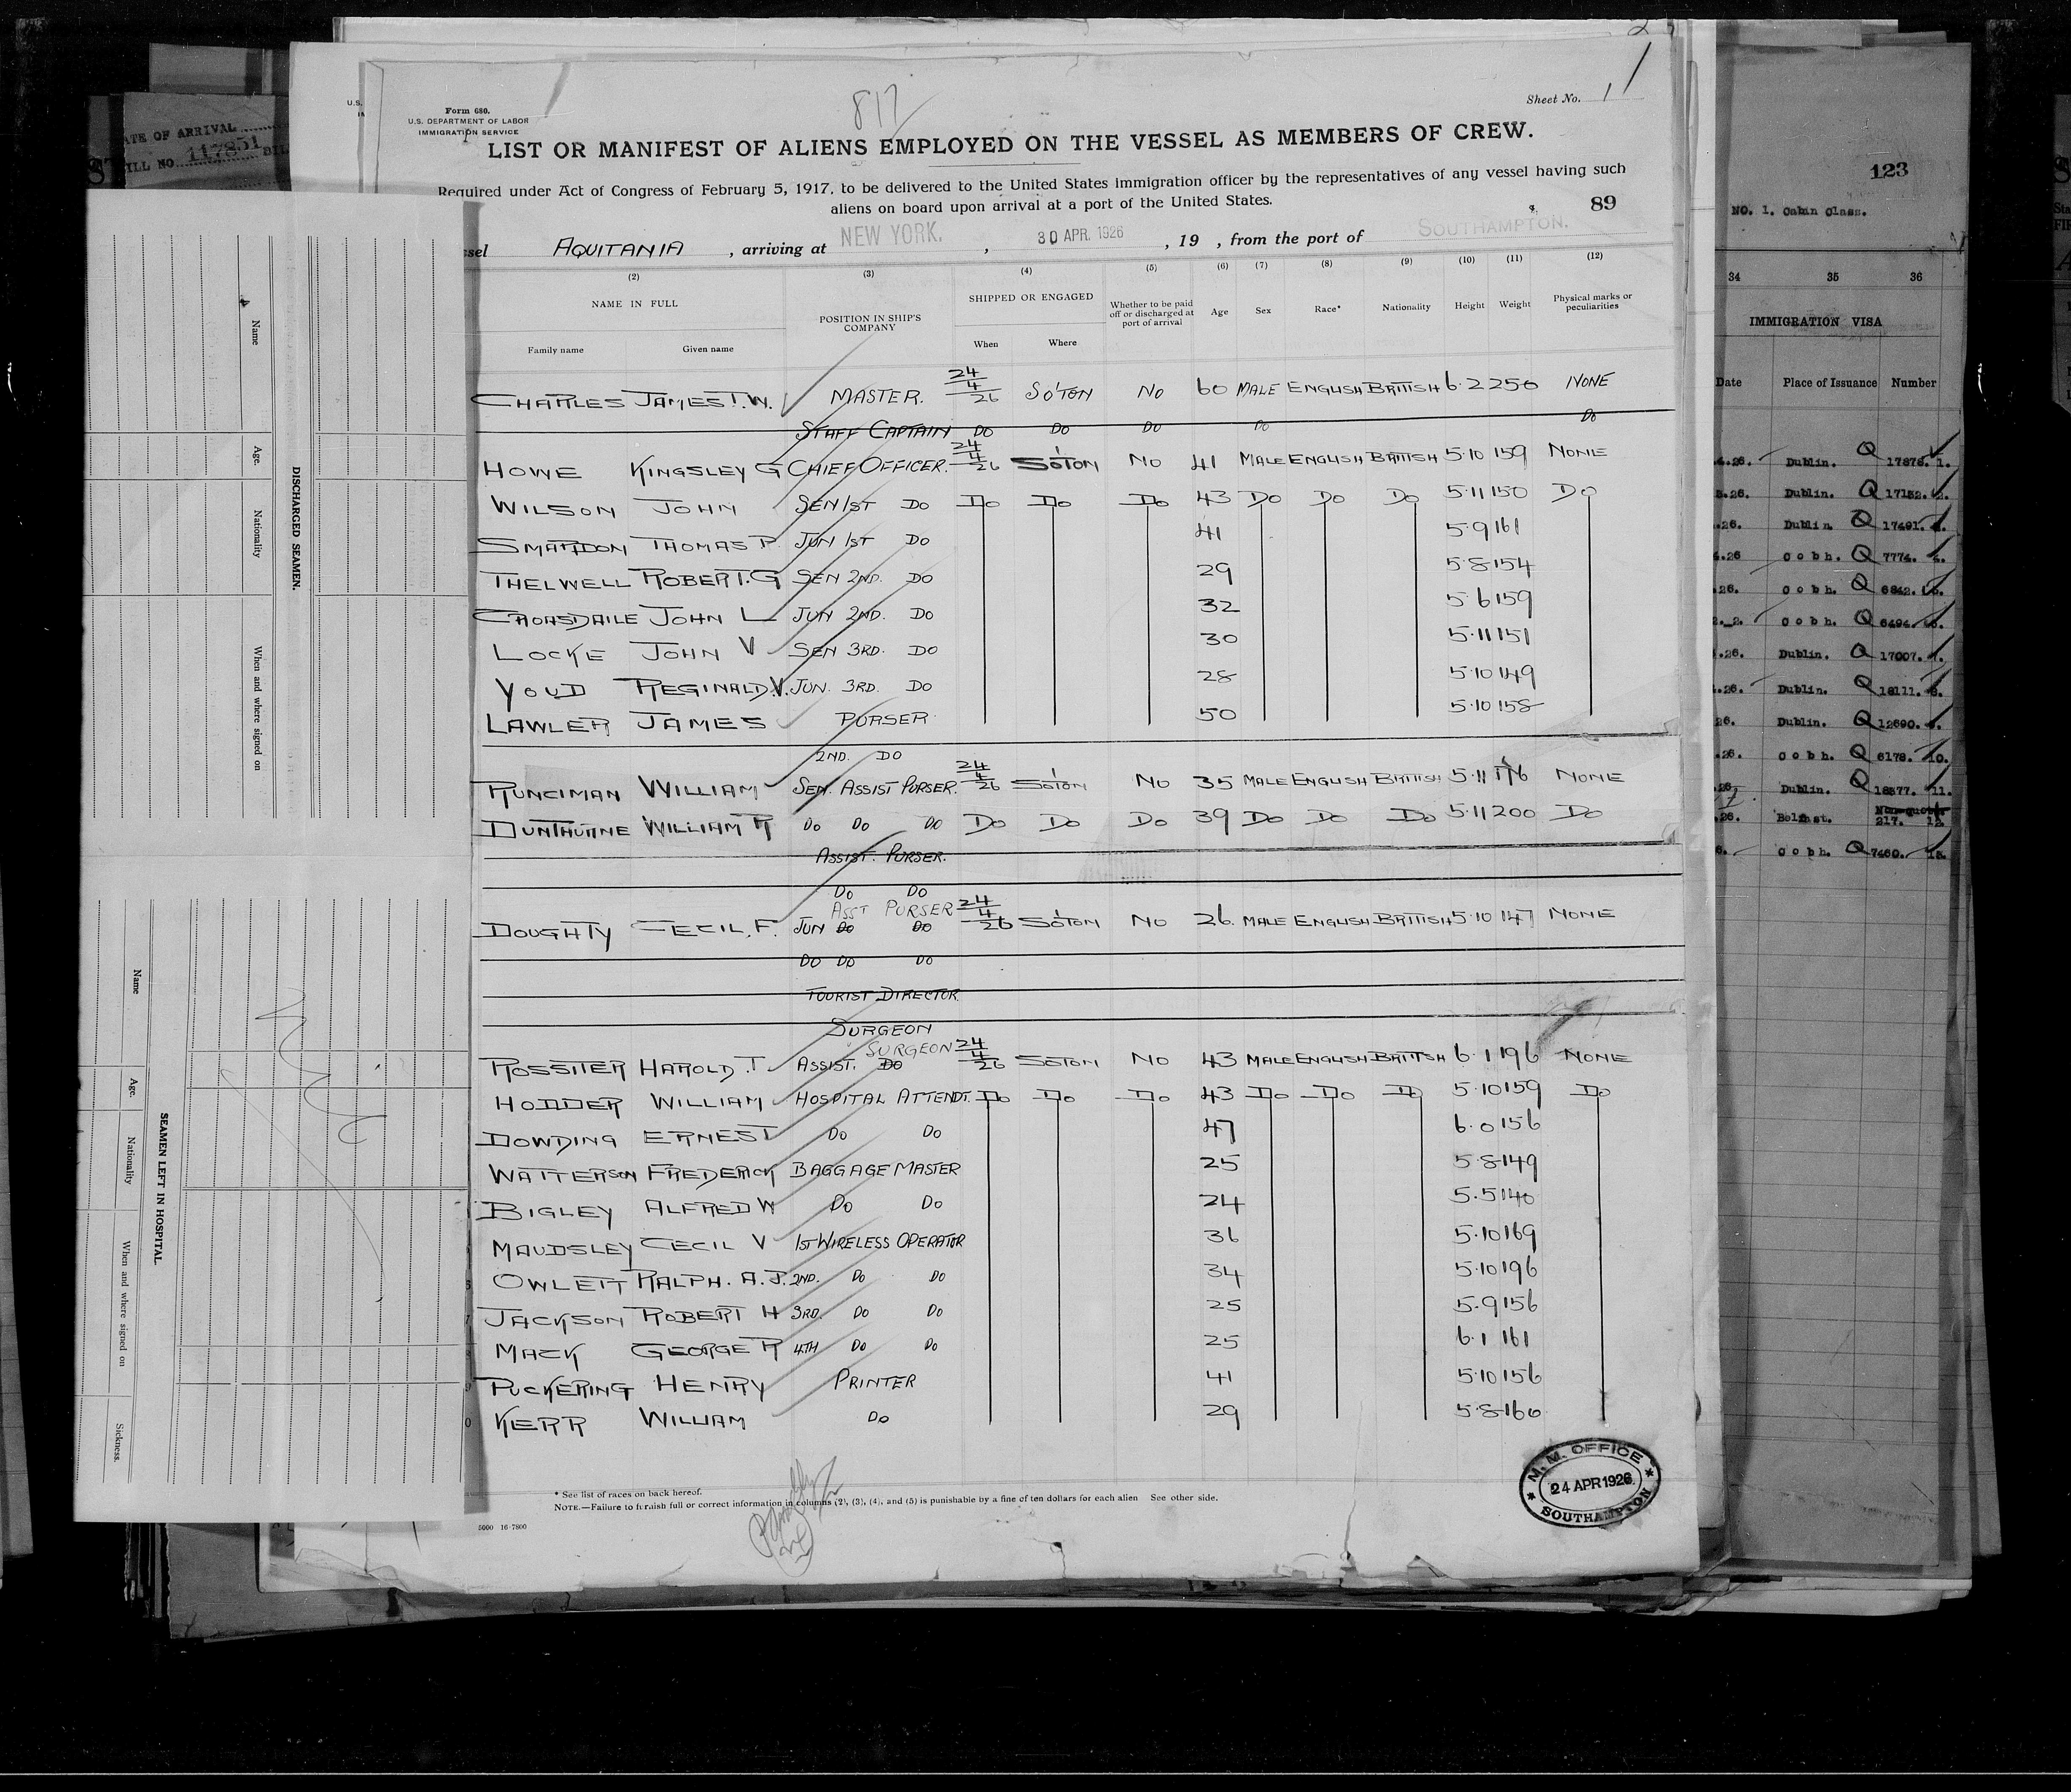 Form 680.
U.S. DEPARTMENT OF LABOR
IMMIGRATION SERVICE
817
Sheet No. 1
LIST OR MANIFEST OF ALIENS EMPLOYED ON THE VESSEL AS MEMBERS OF CREW.
Required under Act of Congress of February 5, 1917, to be delivered to the United States immigration officer by the representatives of any vessel having such
aliens on board upon arrival at a port of the United States.
89
ssel AQUITANIA , arriving at NEW YORK. , 30 APR. 1926 , 19 , from the port of SOUTHAMPTON.
(2) (3) (4) (5) (6) (7) (8) (9) (10) (11) (12)
NAME IN FULL POSITION IN SHIP'S COMPANY SHIPPED OR ENGAGED Whether to be paid off or discharged at port of arrival Age Sex Race* Nationality Height Weight Physical marks or peculiarities
Family name Given name When Where
CHARLES JAMES T.W. MASTER. 24/4/26 SO'TON NO 60 MALE ENGLISH BRITISH 6.2 250 NONE
STAFF CAPTAIN DO DO DO DO DO
HOWE KINGSLEY G CHIEF OFFICER. 24/4/26 SO'TON NO 41 MALE ENGLISH BRITISH 5.10 159 NONE
WILSON JOHN SEN 1ST DO DO DO DO 43 DO DO DO 5.11 150 DO
SMARDON THOMAS P. JUN 1ST DO 41 5.9 161
THELWELL ROBERT.G SEN 2ND. DO 29 5.8 154
CROASDAILE JOHN L JUN 2ND. DO 32 5.6 159
LOCKE JOHN V SEN 3RD. DO 30 5.11 151
YOUD REGINALD.V. JUN. 3RD. DO 28 5.10 149
LAWLER JAMES PURSER 50 5.10 158
2ND. DO
RUNCIMAN WILLIAM SEN. ASSIST PURSER. 24/4/26 SO'TON NO 35 MALE ENGLISH BRITISH 5.11 176 NONE
DUNTHURNE WILLIAM R DO DO DO DO DO DO 39 DO DO DO 5.11 200 DO
ASSIST. PURSER.
DO DO
ASST PURSER
DOUGHTY CECIL.F. JUN DO DO 24/4/26 SO'TON NO 26. MALE ENGLISH BRITISH 5.10 147 NONE
DO DO DO
TOURIST DIRECTOR
SURGEON
SURGEON
ROSSITER HAROLD.T. ASSIST. DO 24/4/26 SO'TON NO 43 MALE ENGLISH BRITISH 6.1 196 NONE
HODDER WILLIAM HOSPITAL ATTENDT. DO DO DO 43 DO DO DO 5.10 159 DO
DOWDING ERNEST DO DO 47 6.0 156
WATTERSON FREDERICK BAGGAGE MASTER 25 5.8 149
BIGLEY ALFRED W DO DO 24 5.5 140
MAUDSLEY CECIL V 1ST WIRELESS OPERATOR 36 5.10 169
OWLETT RALPH. A.J. 2ND. DO DO 34 5.10 196
JACKSON ROBERT H 3RD. DO DO 25 5.9 156
MACK GEORGE R 4TH DO DO 25 6.1 161
PUCKERING HENRY PRINTER 41 5.10 156
KERR WILLIAM DO 29 5.8 160
* See list of races on back hereof.
NOTE.—Failure to furnish full or correct information in columns (2), (3), (4), and (5) is punishable by a fine of ten dollars for each alien See other side.
5000 16-7800
M. M. OFFICE
24 APR 1926
SOUTHAMPTON
ATE OF ARRIVAL
ILL NO 117851
DISCHARGED SEAMEN.
Name
Age.
Nationality
When and where signed on
SEAMEN LEFT IN HOSPITAL
Name
Age.
Nationality
When and where signed on
Sickness.
123
NO. 1. Cabin Class.
34 35 36
IMMIGRATION VISA
Date Place of Issuance Number
.26. Dublin. Q 17876. 1.
.26. Dublin. Q 17152. 2.
.26. Dublin. Q 17491.
.26 Cobh. Q 7774. 4.
.26. Cobh. Q 6842. 5.
Cobh. Q 6494. 6.
.26. Dublin. Q 17007. 7.
.26. Dublin. Q 18111. 8.
26. Dublin. Q 12690. 9.
.26. Cobh. Q 6178. 10.
.26. Dublin. Q 18877. 11.
Non-quota
.26. Belfast. 217. 12.
6. Cobh. Q 7460. 13.